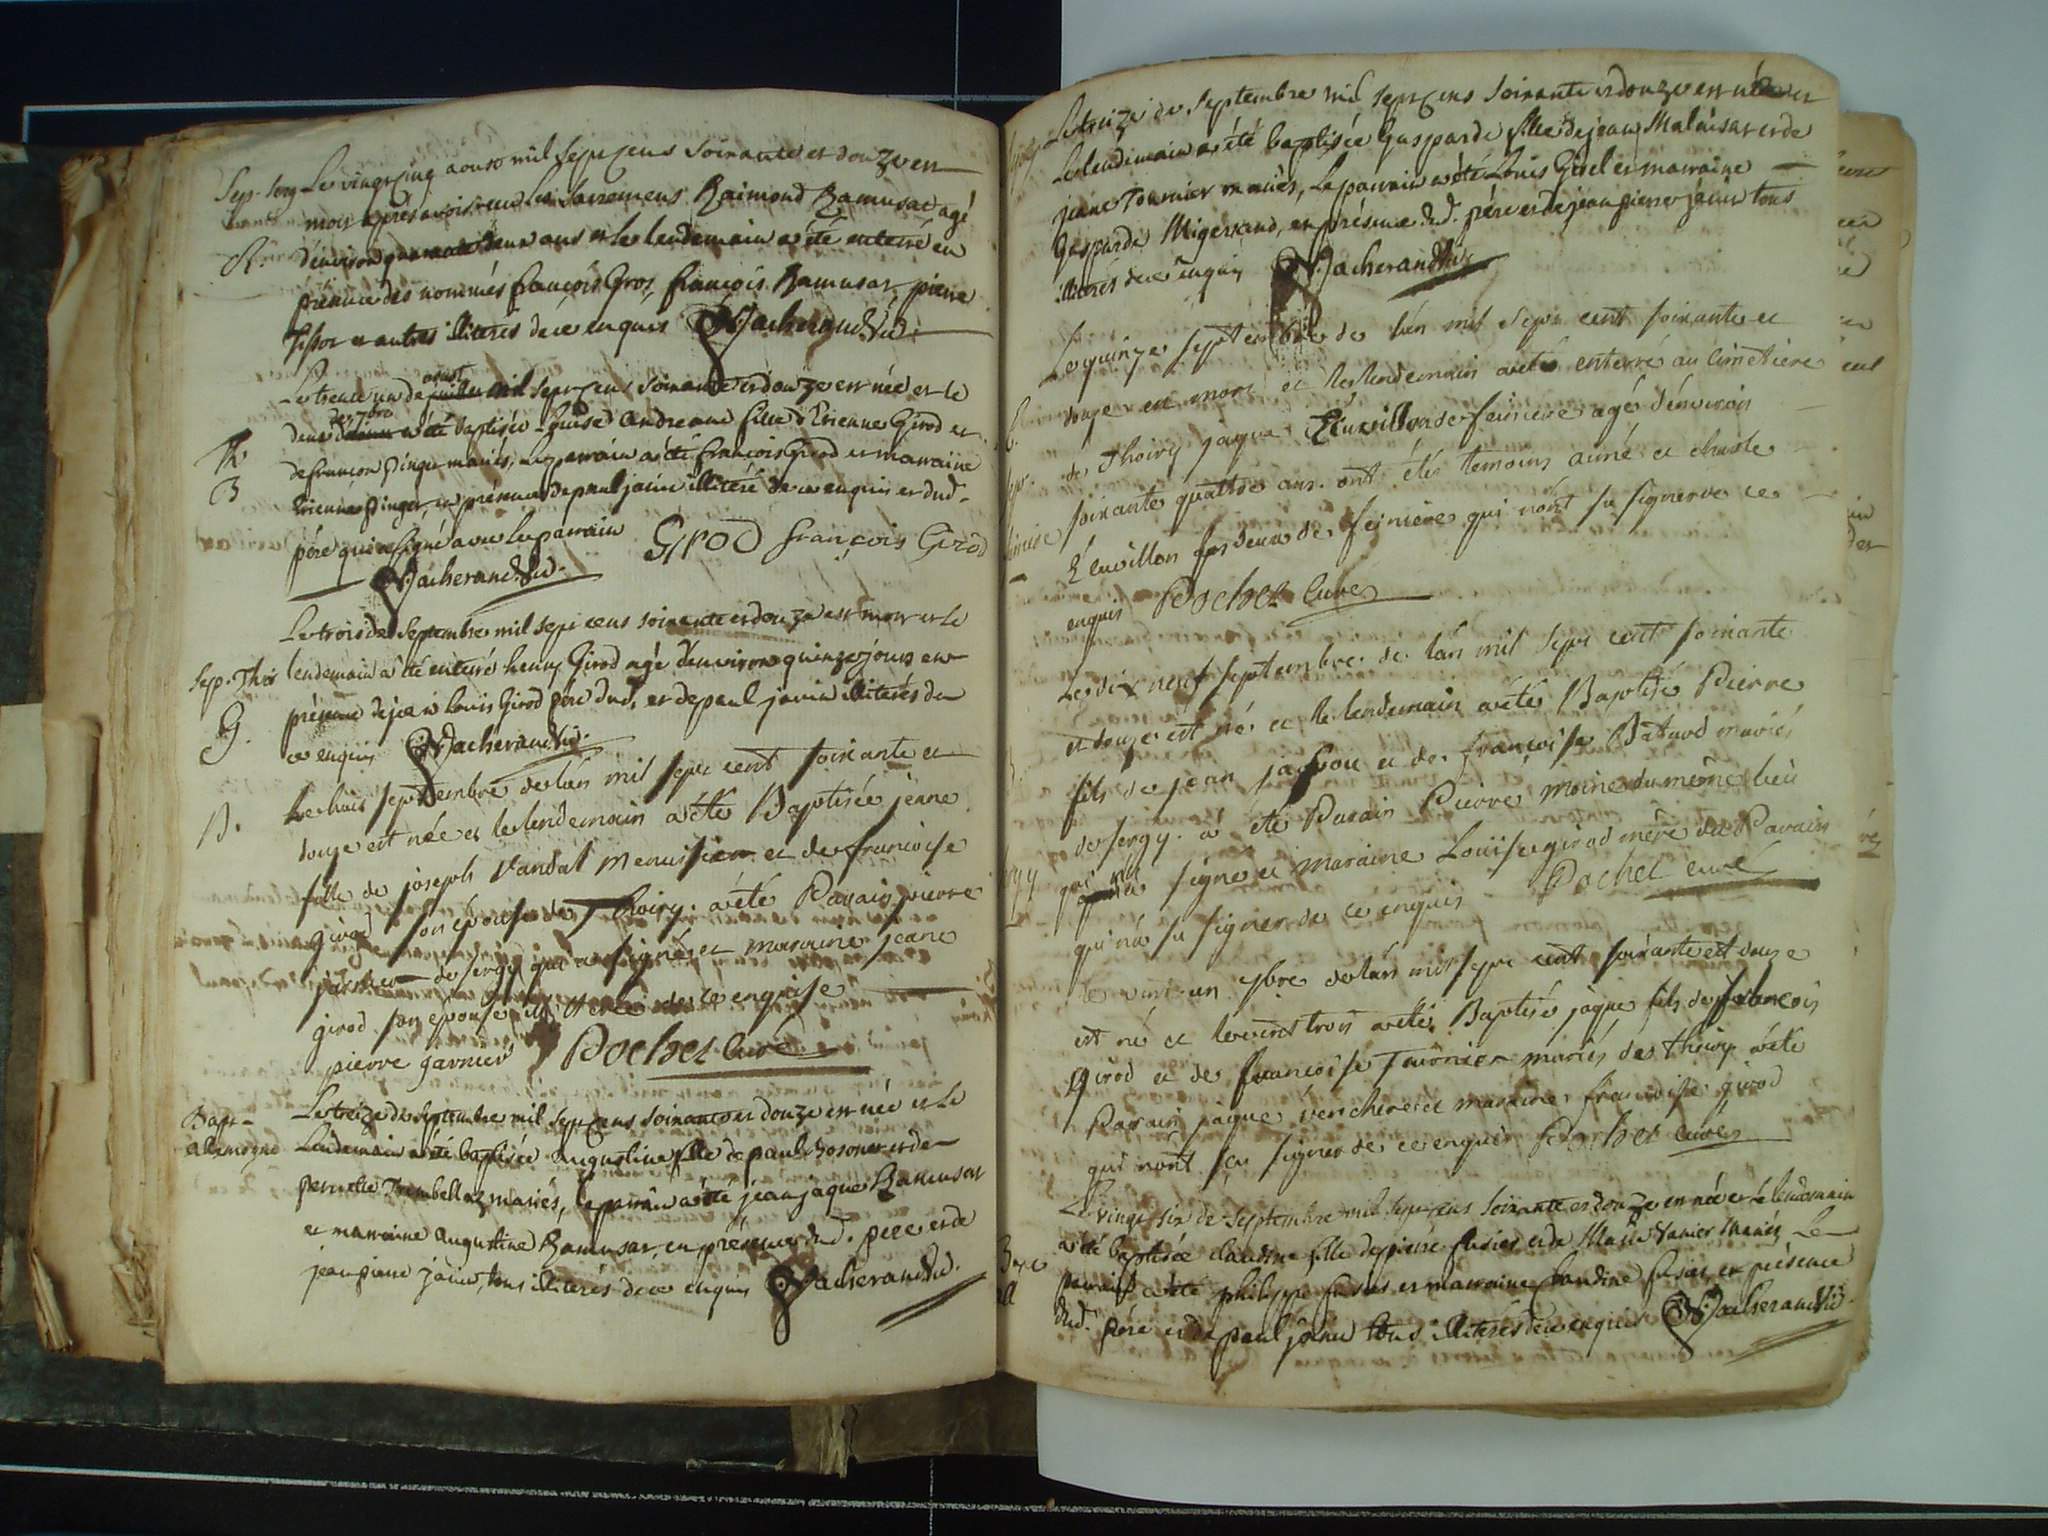 Sep. Serg. Le vingt cinq aoust mil sept cens soixante et douze est
mort après avoir reçu les sacremens Raimond Ramusat agé
R. d'environ quarante deux ans et le lendemain a été enterré en
présence des nommés françois Gros, françois Ramusat, pierre
et autres illiterés de ce enquis Vacherand vic.
Le trente un de aoust mil sept cens soixante et douze est née et le
deux de 7bre a été baptisée Louise Andreane fille d'Etienne Girod et
Th de françoise Pinger mariés, le parrain a été François Girod et marraine
B Etiennaz Pinger, en présence de paul janin illiteré de ce enquis et dud.
père qui a signé avec le parrain GIROD françois Girod
Vacherand vic.
Le trois de Septembre mil sept cens soixante et douze est mort et le
Sep. Thoi lendemain a été enterré henry Girod agé d'environ quinze jours en
G. présence de jean Louis Girod père dud. et de paul janin illiterés de
ce enquis Vacherand vic.
B. Le huit septembre de l'an mil sept cent soixante et
douze est née et le lendemain a été Baptisée jeane
fille de joseph Vandal menusier et de francoise
girod son épouse de Thoiry. a été Parain pierre
de sergy qui a signé et maraine jeane
girod son epouse illiterée de ce enquise
pierre garnier Pochet curé
Bapt- Le treize de septembre mil sept cens soixante et douze est née et le
allemogne Lendemain a été baptisée augustine fille de paul et de
pernette mariés, le parrain a été jean jaque Ramusat
et marraine augustine Ramusat, en présence dud. père et de
jean pierre janin, tous illiterés de ce enquis Vacherand vic.
Le treize de septembre mil sept cens soixante et douze est née et
Le lendemain a été baptisée Gasparde fille de jean et de
jeane Tournier mariés, Le parrain a été Louis Girel et marraine
Gasparde Migerand, en présence dud. père et de jean pierre janin tous
illiterés de ce enquis Vacherand vic.
Le quinze septembre de l'an mil sept cent soixante et
douze est mort et le lendemain a été enterré au cimetière
de Thoiry jaque L'Euvillon de feiniere agé d'environ
soixante quattre ans. ont étés temoins aimé et charle
L'euvillon tous deux de feiniere qui n'ont su signer de ce
enquis Pochet curé
Le dix neuf septembre de l'an mil sept cent soixante
et douze est né et le lendemain a été Baptisé Pierre
fils de jean et de francoise Batard mariés
de sergy. a été Parain Pierre moine du même lieu
qui a signé et maraine Louise girod mère du Parain
qui n'a su signer de ce enquis Pochet curé
le vint un 7bre de l'an mil sept cent soixante et douze
est né et le vint trois a été Baptisé jaque fils de francois
girod et de francoise Tournier mariés de thoiry a été
Parain jaque venchere et maraine francoise girod
qui n'ont sçu signer de ce enquis Pochet curé
Le vingt six de septembre mil sept cens soixante et douze est née et le lendemain
a été baptisée claudine fille de pierre fusier et de Marie mariés Le
parrain a été philippe et marraine Claudine en présence
dud. père et de paul janin tous illiterés de ce enquis Vacherand vic.